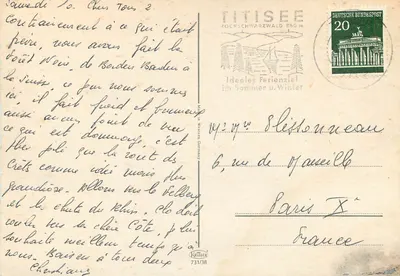 Samedi 10. Chers tous 2
Contrairement à ce qui était
prévu, nous avons fait la
Forêt Noire, de Baden Baden à
la Suisse, et nous sommes
ici, il fait froid et brumeux
aussi aucun point de vue
ce qui est dommage, c'est
plus joli que la route des
Crêtes comme votre mari plus
grandiose. Allons vers le Felberg
et la chute du Rhin.
roulez vers la chère Côte, je vous
souhaite meilleur temps qu'à
nous. Baisers à tous deux
TITISEE
HOCHSCHWARZWALD 860 M
Ideales Ferienziel
im Sommer u. Winter
DEUTSCHE BUNDESPOST
20
Mr Mme Plissonneau
6, rue de Marseille
Paris Xe
France